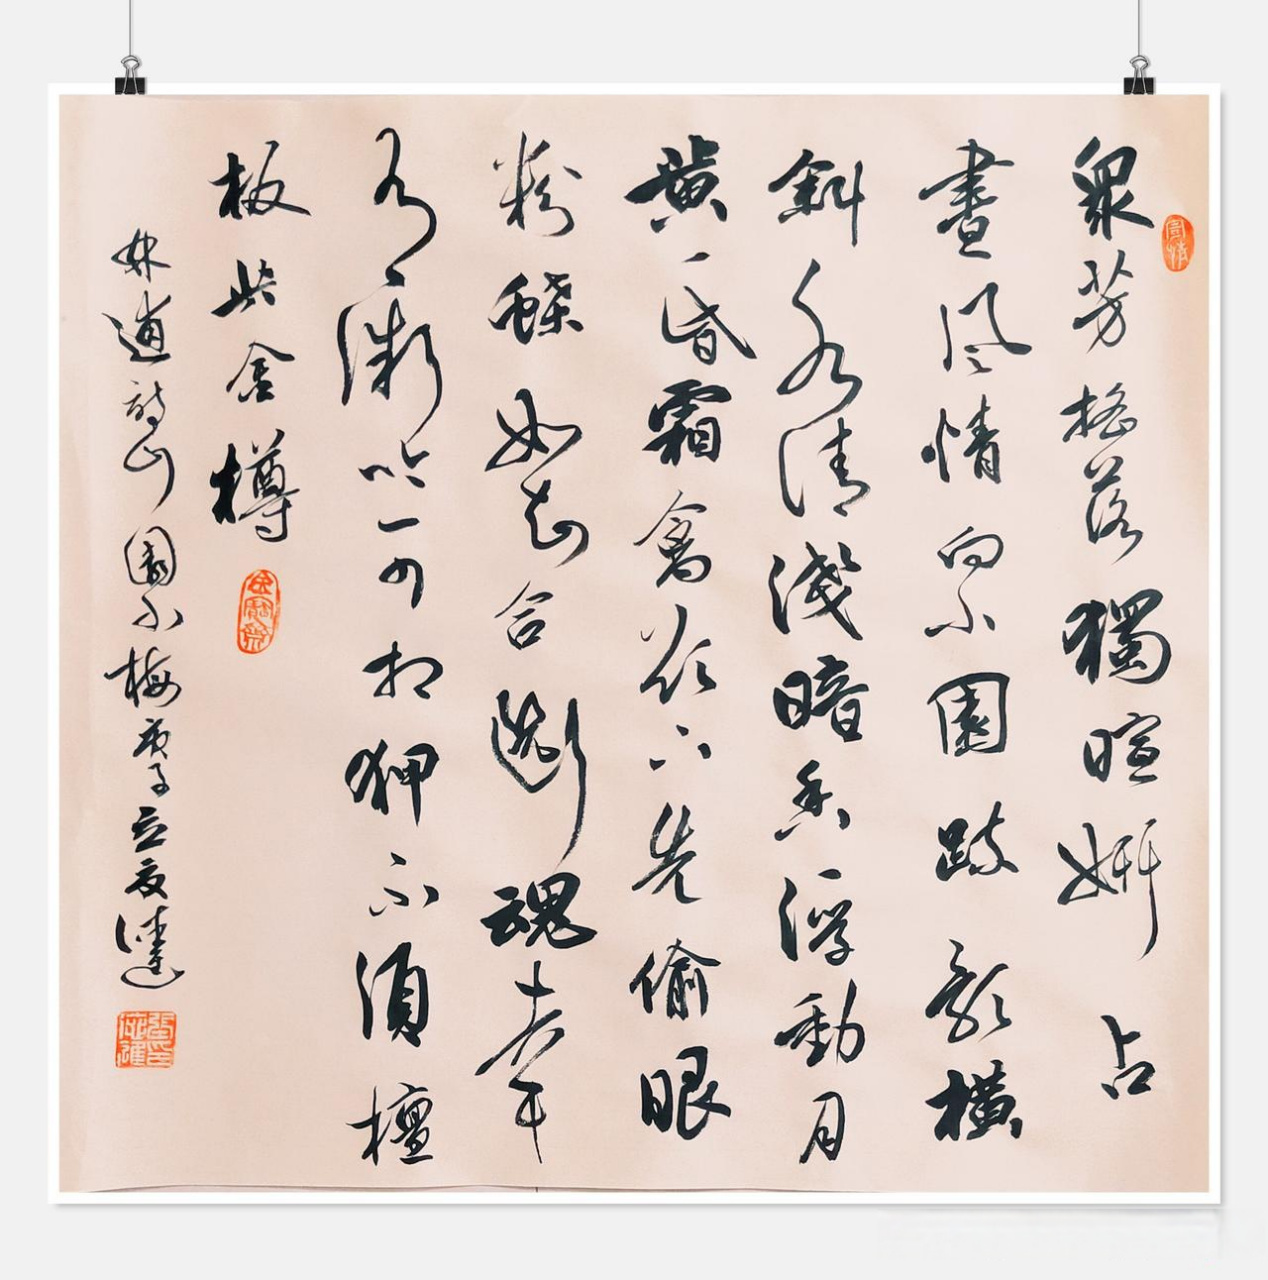 眾芳搖落獨暄妍占
晝風情向小園踈影橫
斜水清淺暗香浮動月
黃昏霜禽欲下先偷眼
粉蝶如知合斷魂幸
有微吟可相狎不須檀
板共金樽
林逋詩山園小梅庚子立夏